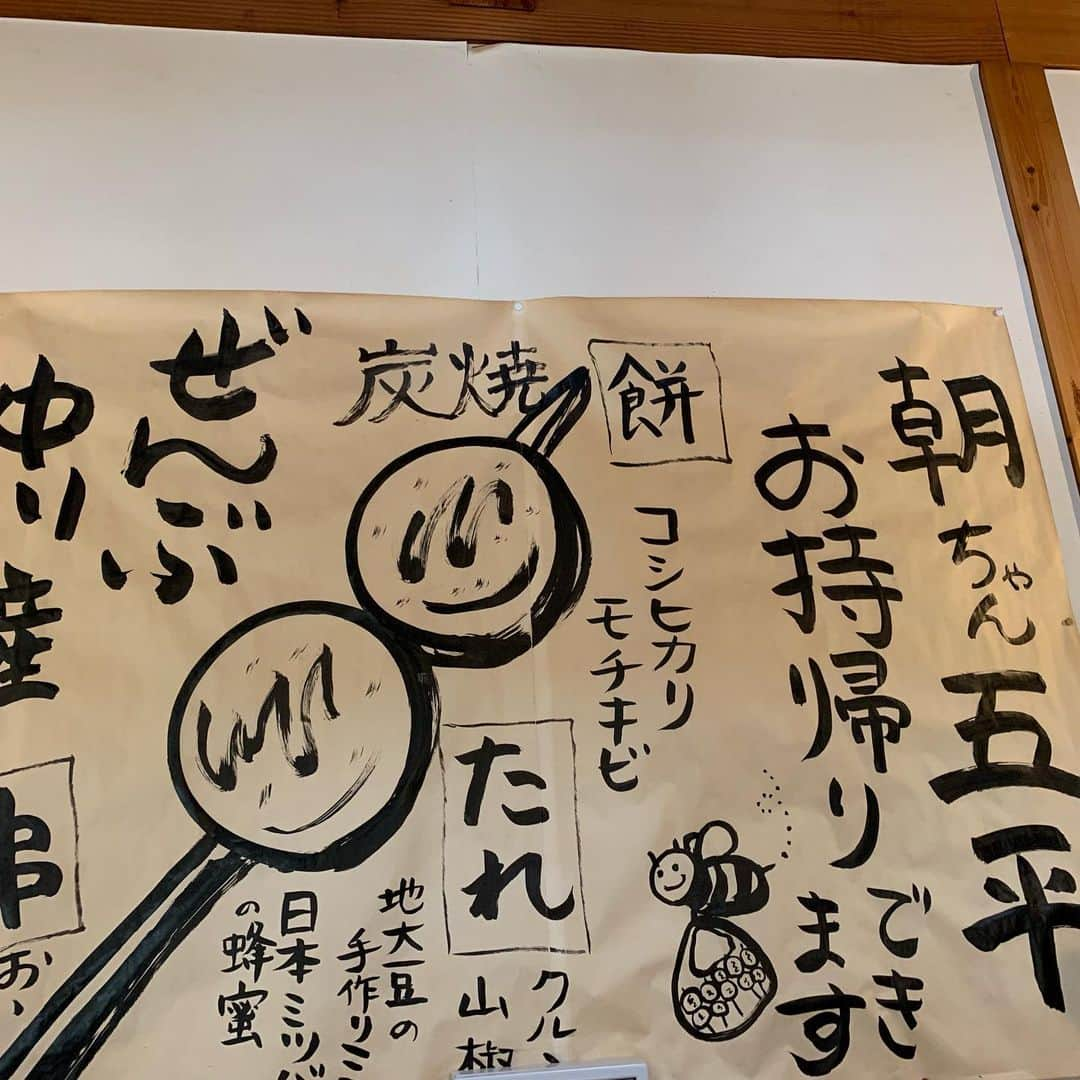 朝ちゃん五平
お持帰りできます
餅
コシヒカリ
モチキビ
炭焼
たれ
クル
山椒
地大豆の
手作りミ
日本ミツバ
の蜂蜜
ぜんぶ
産
串
お